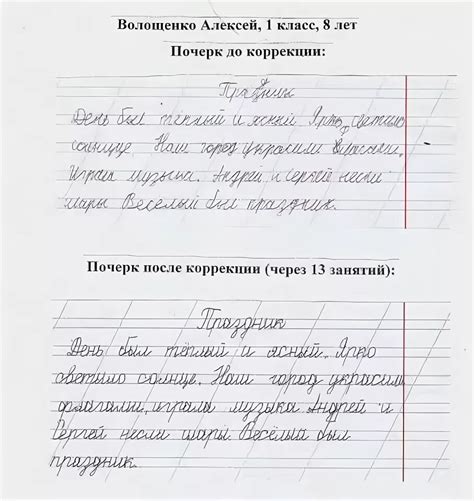 Волощенко Алексей, 1 класс, 8 лет
Почерк до коррекции:
Праздник
День был тёплый и ясный. Ярко светило
солнце. Наш город украсили
Играл музыка. Андрей и Сергей несли
шары Веселый был праздник.
Почерк после коррекции (через 13 занятий):
Праздник
День был тёплый и ясный. Ярко
светило солнце. Наш город украсили
флагами, играла музыка. Андрей и
Сергей несли шары. Весёлый был
праздник.